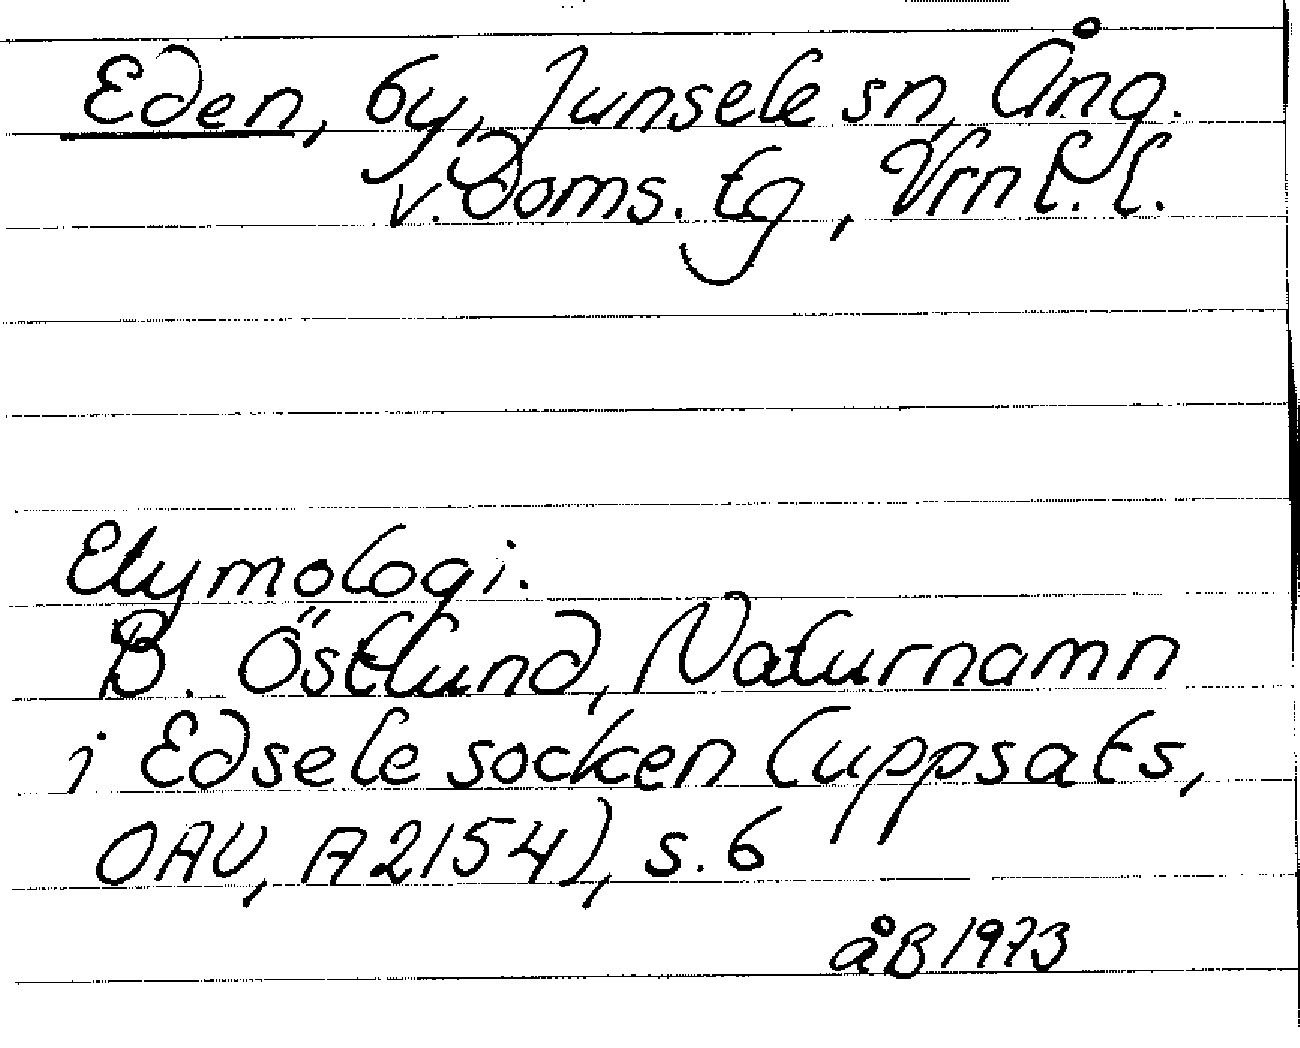 Eden, by, Junsele sn, Ång.
v. Doms. tg, Vrnl. l.
Etymologi.
B. Östlund, Naturnamn
i Edsele socken (uppsats,
OAU, A2154), s. 6
åB 1973